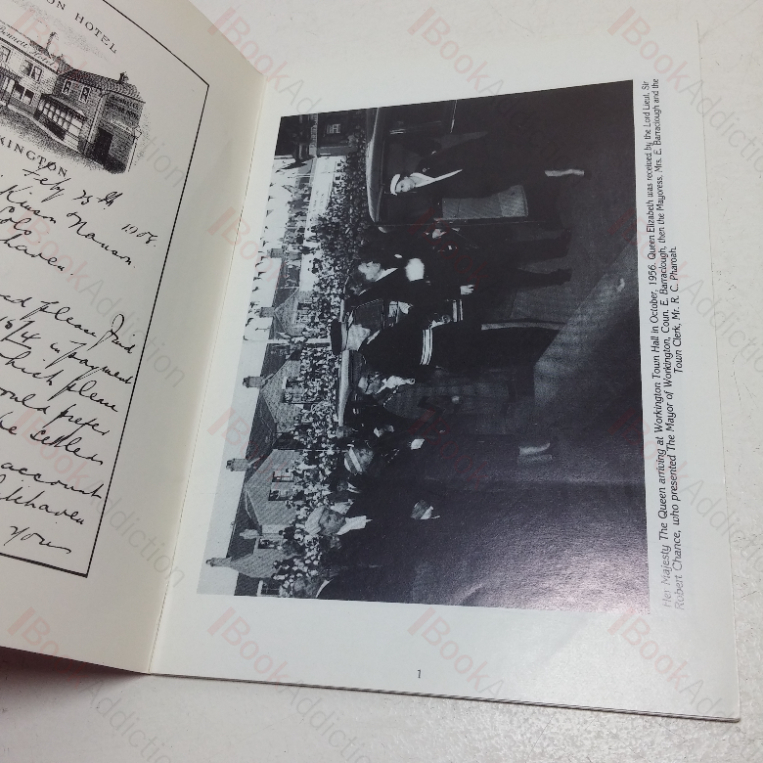 ON HOTEL
KINGTON
Feby 1908.
Manson.
haven.
please find
payment
which please
would prefer
settles
account
Yours
Her Majesty The Queen arriving at Workington Town Hall in October, 1956. Queen Elizabeth was received by the Lord Lieut, Sir
Robert Chance, who presented The Mayor of Workington, Coun. E. Barraclough, then the Mayoress, Mrs. E. Barraclough and the
Town Clerk, Mr. R. C. Pharoah.
1
BookAddiction